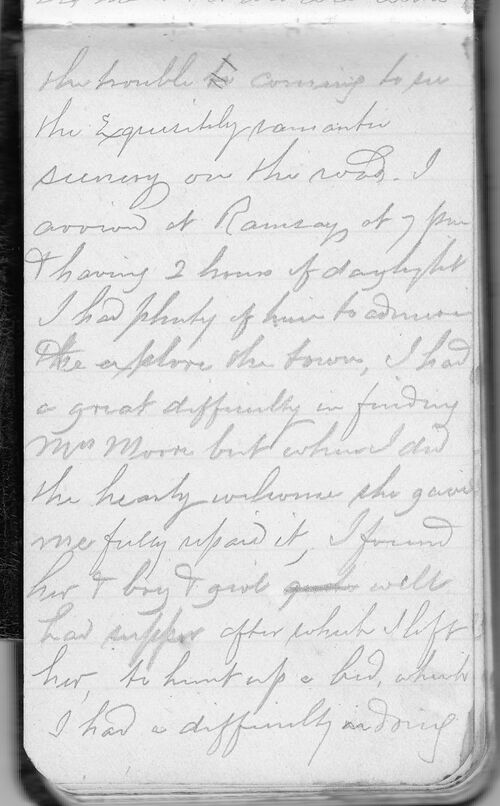 the trouble in coming to see
the Exquisitely romantic
scenery on the road. I
arrived at Ramsay at 7 pm
& having 2 hours of daylight
I had plenty of time to admire
& explore the town, I had
a great difficulty in finding
Mrs Moore but when I did
the hearty welcome she gave
me fully repaid it, I found
her & boy & girl well
had supper after which I left
her, to hunt up a bed, which
I had a difficulty in doing